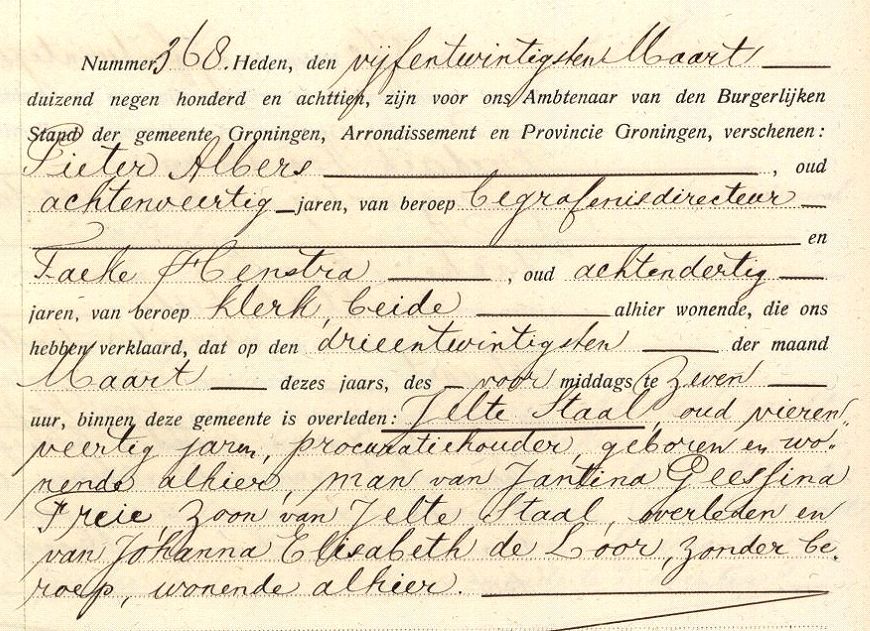 Nummer 368. Heden, den vijfentwintigsten Maart
duizend negen honderd en achttien, zijn voor ons Ambtenaar van den Burgerlijken
Stand der gemeente Groningen, Arrondissement en Provincie Groningen, verschenen:
Pieter Albers, oud
achtenveertig jaren, van beroep begrafenisdirecteur
en
Faeke Henstra, oud achtendertig
jaren, van beroep klerk, beide alhier wonende, die ons
hebben verklaard, dat op den drieentwintigsten der maand
Maart dezes jaars, des voor middags te zeven
uur, binnen deze gemeente is overleden: Jelte Staal, oud vieren"
veertig jaren, procuratiehouder, geboren en wo"
nende alhier, man van Jantina Geessina
Freie, zoon van Jelte Staal, overleden en
van Johanna Elisabeth de Loor, zonder be"
roep, wonende alhier.